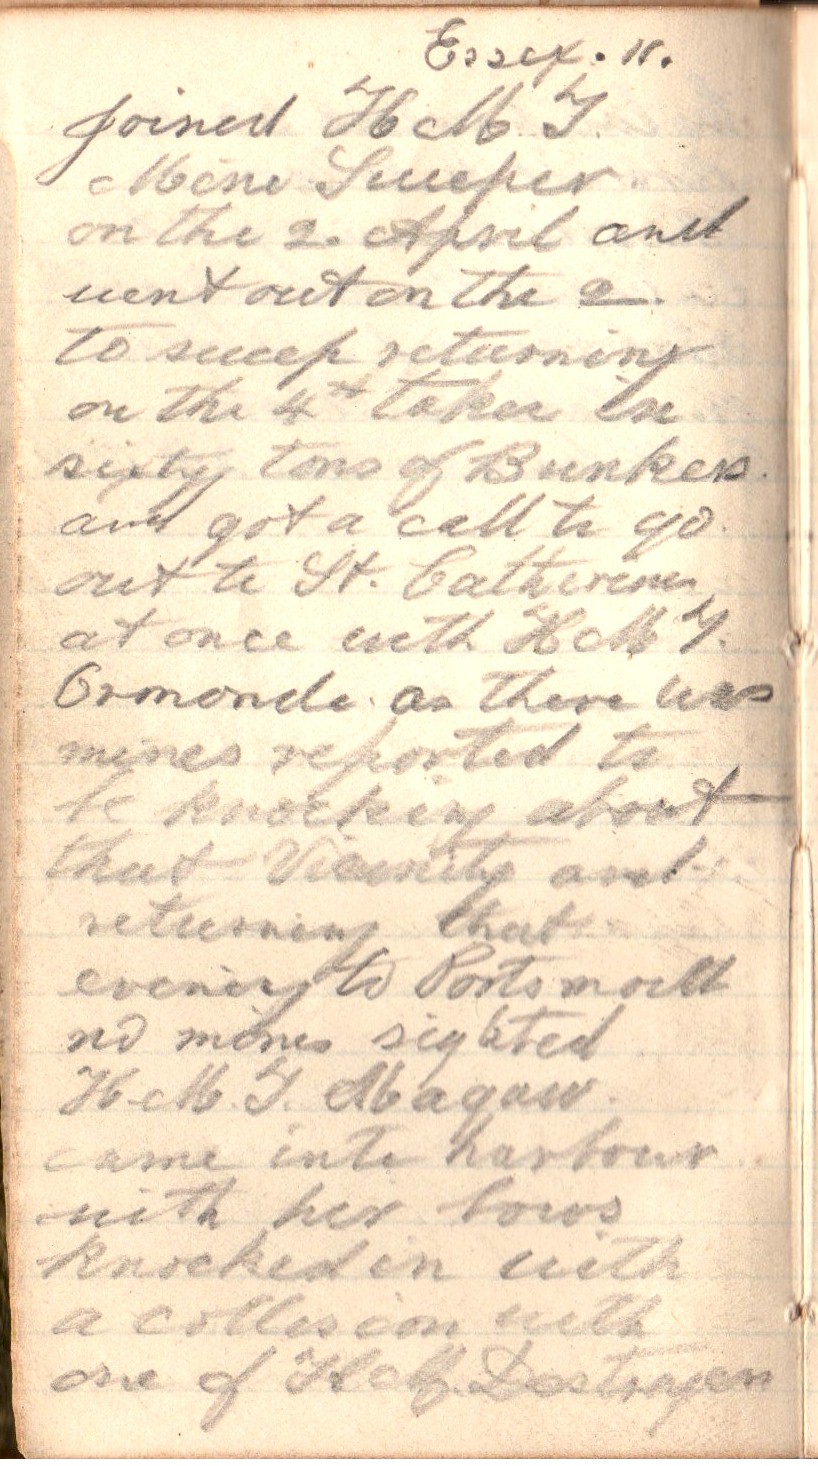 Essex. 11.
Joined H M T
Mine Sweeper
on the 2. April and
went out on the 2.
to sweep returning
on the 4th taken in
sixty tons of Bunkers.
and got a call to go
out to St. Catherines
at once with H M T.
Ormonde. as there was
mines reported to
be knocking about
that Vicinity and
returning that
evening to Portsmouth
no mines sighted
H. M. T. Magaw.
came into harbour
with her bows
knocked in with
a collision with
one of H M Destroyers